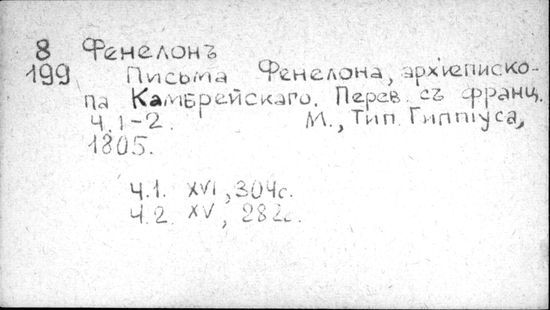 8 Фенелонъ
199 Письма Фенелона, архіеписко-
па Камбрейскаго. Перев. съ франц.
Ч.1-2. М., Тип. Гиппіуса,
1805.
Ч.1. XVI, 304с.
Ч.2. XV, 282с.